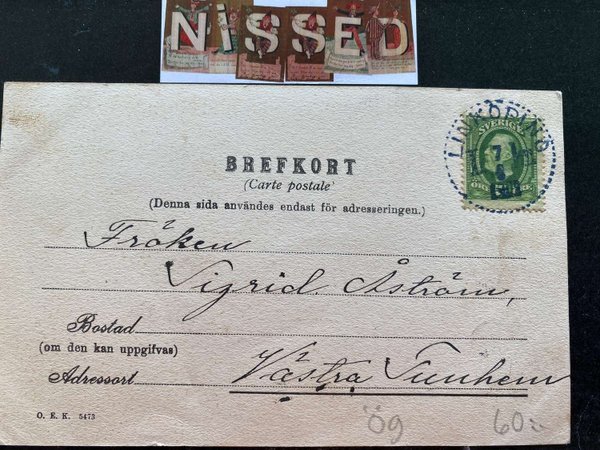 NiSSED
LINKÖPING
SVERIGE
7
BREFKORT
(Carte postale)
(Denna sida användes endast för adresseringen.)
Fröken
Sigrid Åström,
Bostad
(om den kan uppgifvas)
Adressort Västra Tunhem
O. E. K. 5473
Ög 60:-